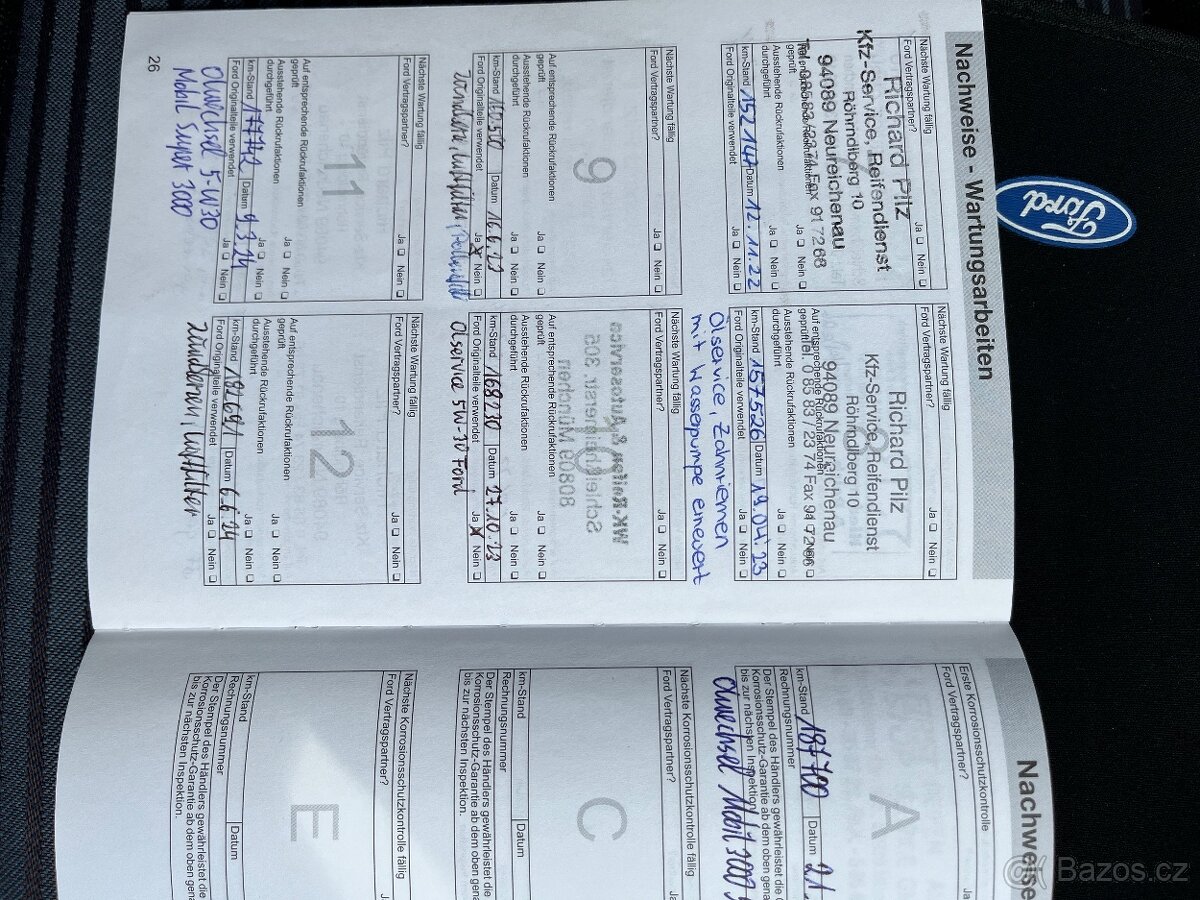 Nachweise - Wartungsarbeiten
Nächste Wartung fällig
Ford Vertragspartner? Ja Nein
Richard Pilz
Kfz-Service, Reifendienst
Röhrndlberg 10
94089 Neureichenau
Tel. 0 85 83 / 23 74 Fax 91 72 68
geprüft Ja Nein
Ausstehende Rückrufaktionen
durchgeführt Ja Nein
km-Stand 152147 Datum 12.11.22
Ford Originalteile verwendet Ja Nein
Nächste Wartung fällig
Ford Vertragspartner? Ja Nein
Richard Pilz
Kfz-Service, Reifendienst
Röhrndlberg 10
94089 Neureichenau
Auf entsprechende Rückrufaktionen
geprüft Tel. 0 85 83 / 23 74 Fax 91 72 68
Ausstehende Rückrufaktionen
durchgeführt Ja Nein
km-Stand 157526 Datum 19.04.23
Ford Originalteile verwendet Ja Nein
Ölservice, Zahnriemen
mit Wasserpumpe erneuert
Nächste Wartung fällig
Ford Vertragspartner? Ja Nein
9
Auf entsprechende Rückrufaktionen
geprüft Ja Nein
Ausstehende Rückrufaktionen
durchgeführt Ja Nein
km-Stand 160.500 Datum 16.6.23
Ford Originalteile verwendet Ja Nein
Zündkerz, Luftfilter, Pollenfilter
Nächste Wartung fällig
Ford Vertragspartner? Ja Nein
10
Schleißheimerstr. 305
80809 München
Auf entsprechende Rückrufaktionen
geprüft Ja Nein
Ausstehende Rückrufaktionen
durchgeführt Ja Nein
km-Stand 168230 Datum 27.10.23
Ford Originalteile verwendet Ja Nein
Ölservice 5W-30 Ford
Nächste Wartung fällig
Ford Vertragspartner? Ja Nein
11
Auf entsprechende Rückrufaktionen
geprüft Ja Nein
Ausstehende Rückrufaktionen
durchgeführt Ja Nein
km-Stand 177712 Datum 9.3.24
Ford Originalteile verwendet Ja Nein
Ölwechsel 5-W30
Mobil Super 3000
Nächste Wartung fällig
Ford Vertragspartner? Ja Nein
12
Auf entsprechende Rückrufaktionen
geprüft Ja Nein
Ausstehende Rückrufaktionen
durchgeführt Ja Nein
km-Stand 182691 Datum 6.6.24
Ford Originalteile verwendet Ja Nein
Zündkerzen, Luftfilter
26
Nachweise
Erste Korrosionsschutzkontrolle
Ford Vertragspartner? Ja
A
km-Stand 187700 Datum 21.
Rechnungsnummer
Der Stempel des Händlers gewährleistet die
Korrosionsschutz-Garantie ab dem oben gena
bis zur nächsten Inspektion.
Ölwechsel Mobil 3000
Nächste Korrosionsschutzkontrolle fällig
Ford Vertragspartner? Ja
C
km-Stand Datum
Rechnungsnummer
Der Stempel des Händlers gewährleistet die
Korrosionsschutz-Garantie ab dem oben gena
bis zur nächsten Inspektion.
Nächste Korrosionsschutzkontrolle fällig
Ford Vertragspartner?
E
km-Stand Datum
Rechnungsnummer
Der Stempel des Händlers gewährleistet die
Korrosionsschutz-Garantie ab dem oben gena
bis zur nächsten Inspektion.
Ford
Bazos.cz